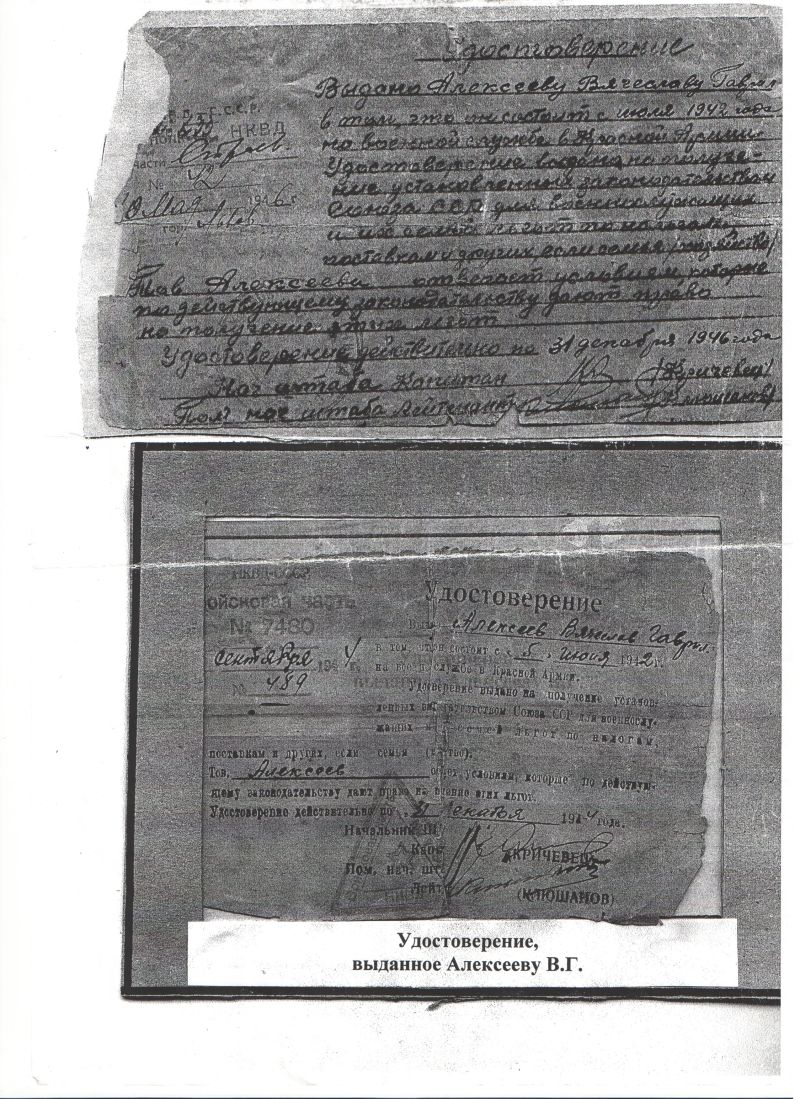 Удостоверение
Выдано Алексееву Вячеславу Гаврил
в том, что он состоит с июля 1942 года
на военной службе в Красной Армии
Удостоверение выдано на получе-
ние установленных законодательством
Союза ССР для военнослужащих
и их семей льгот по налогам
поставкам и других если семья /хозяйство/
НКВД
№ 42
10 Мая 1946 г
гор. Львов
Тов. Алексеева отвечает условиям которые
по действующему законодательству дают право
на получение этих льгот
Удостоверение действительно по 31 декабря 1946 года
Нач штаба Капитан /Кричевец/
Пом нач штаба Лейтенант /Клюшанов/
НКВД-СССР
ойсковая часть
№ 7480
сентября 1944 г.
№ 489
Удостоверение
Алексеев Вячеслав Гаврил.
в том, что он состоит с 5. июля 1942 г.
на во й службе в Красной Армии.
Удо оверение выдано на получение установ-
ленных за ательством Союза ССР для военнослу-
жащих и семей льгот по налогам,
поставкам и других, если семья (х тво).
Тов. Алексеев от ет условиям, которые по действую-
щему законодательству дают право на п ение этих льгот.
Удостоверение действительно по 31 декабря 1944 года.
Начальник Ш
Капи (КРИЧЕВЕЦ)
Пом. нач. шт
Лейт (КЛЮШАНОВ)
Удостоверение,
выданное Алексееву В.Г.